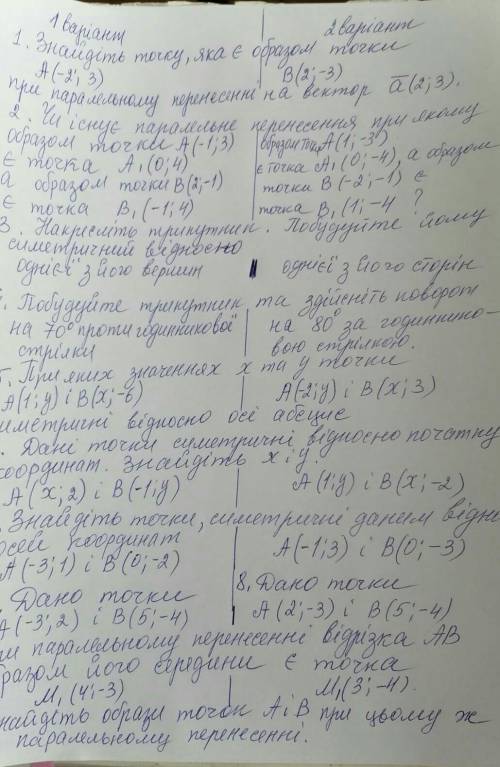 1 варіант 2 варіант
1. Знайдіть точку, яка є образом точки
А(-2; 3) В(2; -3)
при паралельному перенесенні на вектор а̄(2; 3).
2. Чи існує паралельне перенесення при якому
образом точки А(-1; 3) образом точки А(1; -3)
є точка А₁(0; 4) є точка А₁(0; -4), а образом
а образом точки В(2; -1) точки В(-2; -1) є
є точка В₁(-1; 4) точка В₁(1; -4 ?
3. Накресліть трикутник. Побудуйте йому
симетричний відносно
однієї з його вершин однієї з його сторін
. Побудуйте трикутник та здійсніть поворот
на 70° проти годинникової на 80° за годиннико-
стрілки вою стрілкою.
. При яких значеннях х та у точки
А(1; у) і В(х; -6) А(-2; у) і В(х; 3)
иметричні відносно осі абсцис
. Дані точки симетричні відносно початку
координат. Знайдіть х і у.
А(х; 2) і В(-1; у) А(1; у) і В(х; -2)
. Знайдіть точки, симетричні даним відно
осей координат
А(-3; 1) і В(0; -2) А(-1; 3) і В(0; -3)
. Дано точки 8. Дано точки
А(-3; 2) і В(5; -4) А(2; -3) і В(5; -4)
ри паралельному перенесенні відрізка АВ
бразом його середини є точка
М₁(4; -3) М₁(3; -4).
найдіть образи точок А і В при цьому ж
паралельному перенесенні.